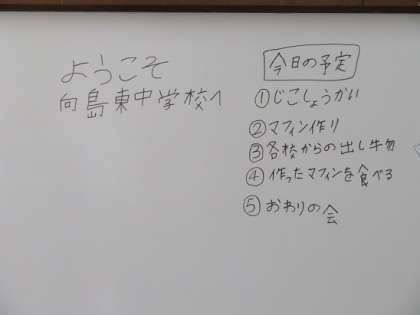 ようこそ
向島東中学校へ
今日の予定
①じこしょうかい
②マフィン作り
③各校からの出し物
④作ったマフィンを食べる
⑤おわりの会